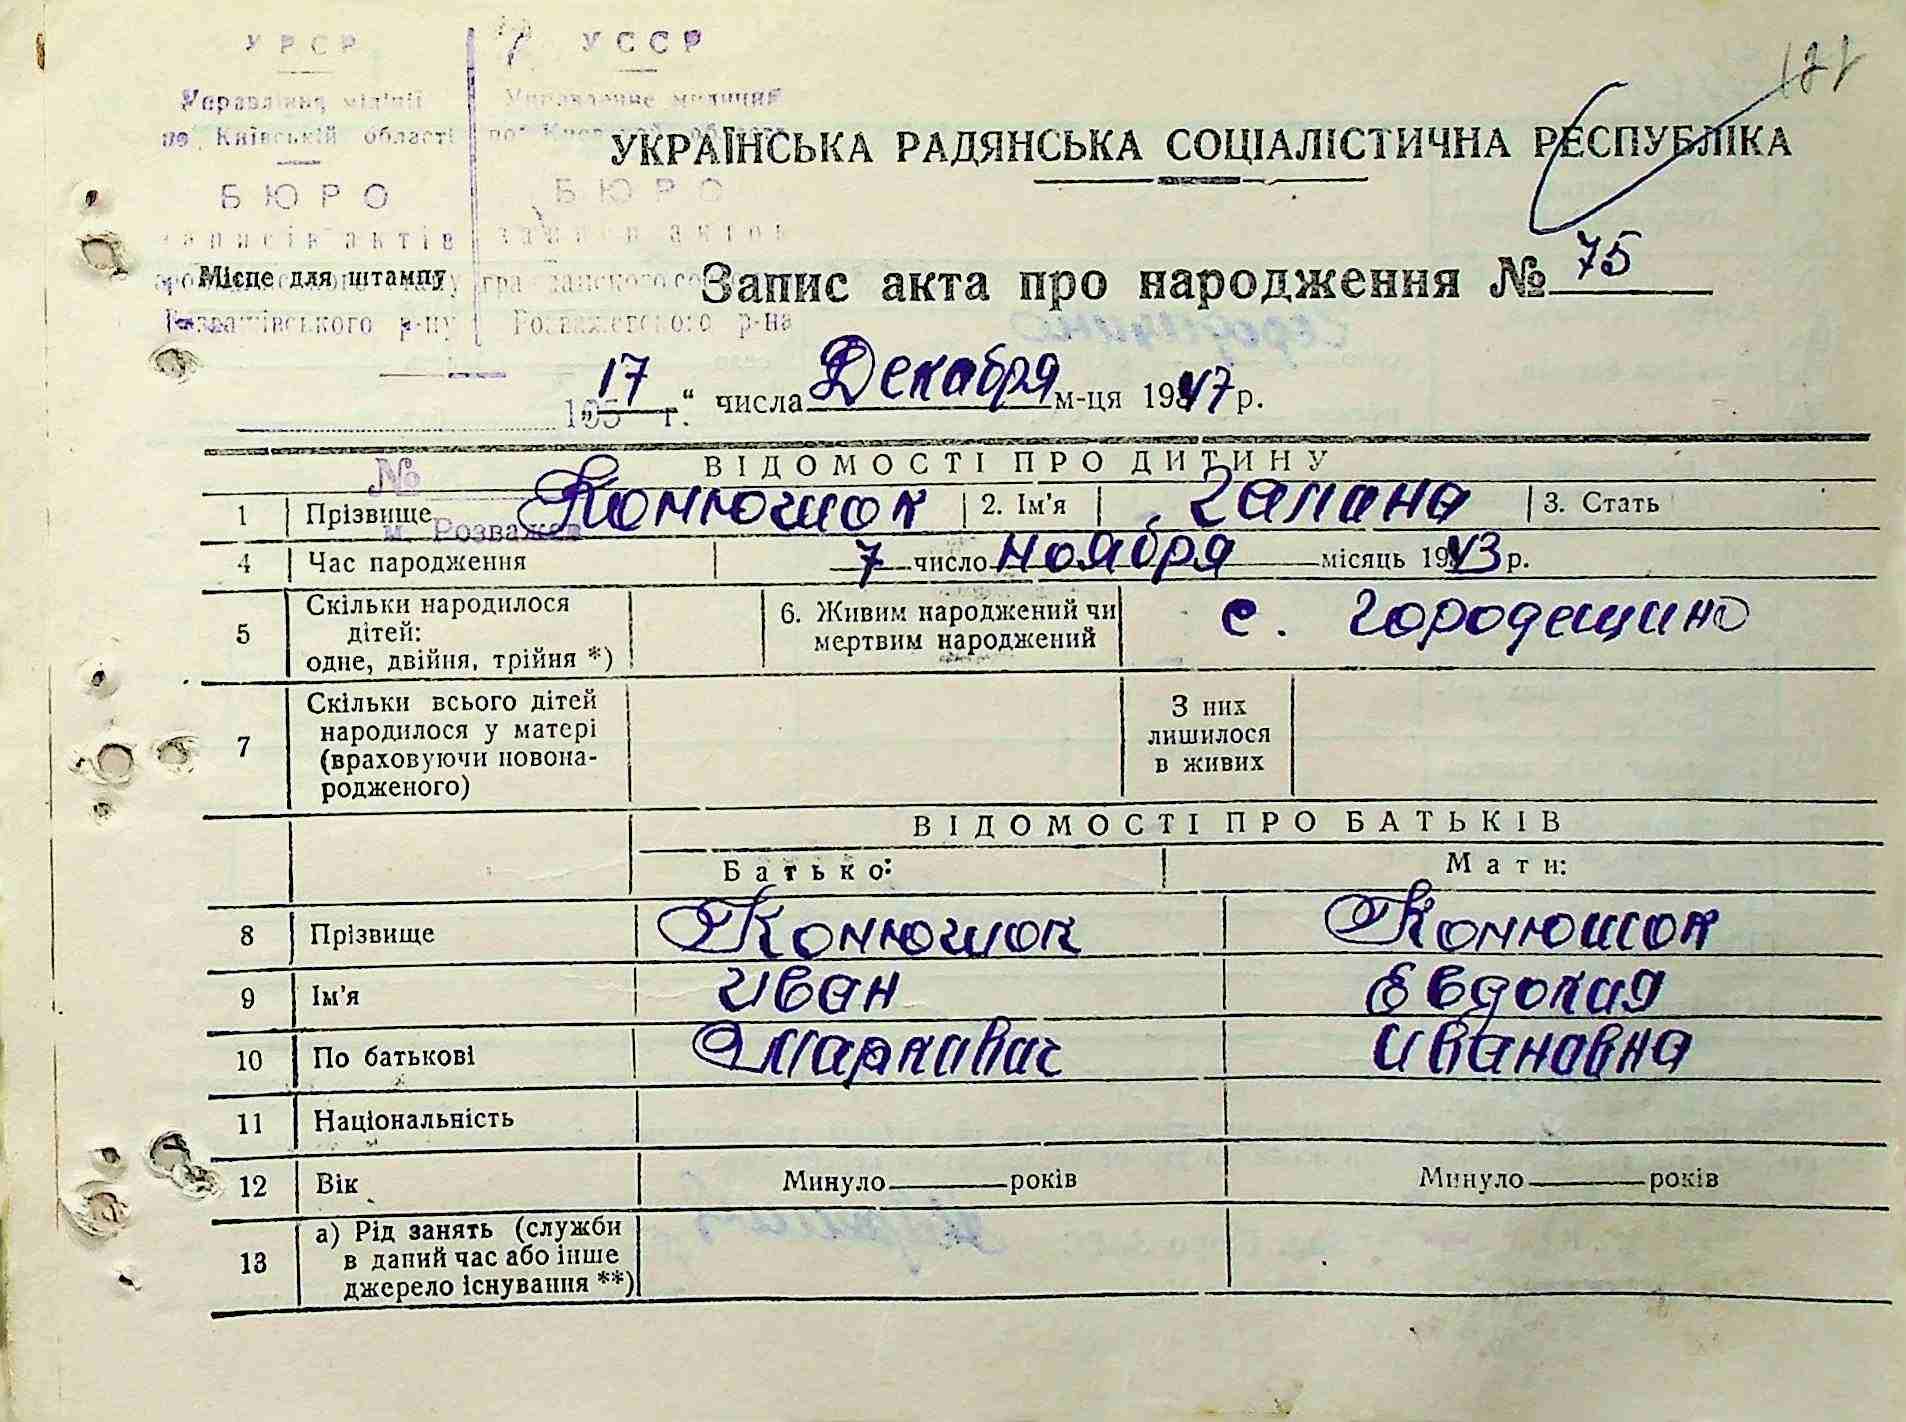 УРСР
УССР
Управління міліції
Управление милиции
по Київській області
по Киевской области
БЮРО
БЮРО
записів актів
записи актов
гражданского
Місце для штампу
Розважівського р-ну
Розважевского р-на
195 г.
№
м. Розважев
121
УКРАЇНСЬКА РАДЯНСЬКА СОЦІАЛІСТИЧНА РЕСПУБЛІКА
Запис акта про народження № 75
„17“ числа Декабря м-ця 1947 р.
ВІДОМОСТІ ПРО ДИТИНУ
1 Прізвище Конюшок 2. Ім'я Галина 3. Стать
4 Час народження 7 число ноября місяць 1943 р.
5 Скільки народилося дітей: одне, двійня, трійня *) 6. Живим народжений чи мертвим народжений с. Городещино
7 Скільки всього дітей народилося у матері (враховуючи новонародженого) З них лишилося в живих
ВІДОМОСТІ ПРО БАТЬКІВ
Батько: Мати:
8 Прізвище Конюшок Конюшок
9 Ім'я Иван Евдокия
10 По батькові Маркович Ивановна
11 Національність
12 Вік Минуло років Минуло років
13 а) Рід занять (служби в даний час або інше джерело існування **)